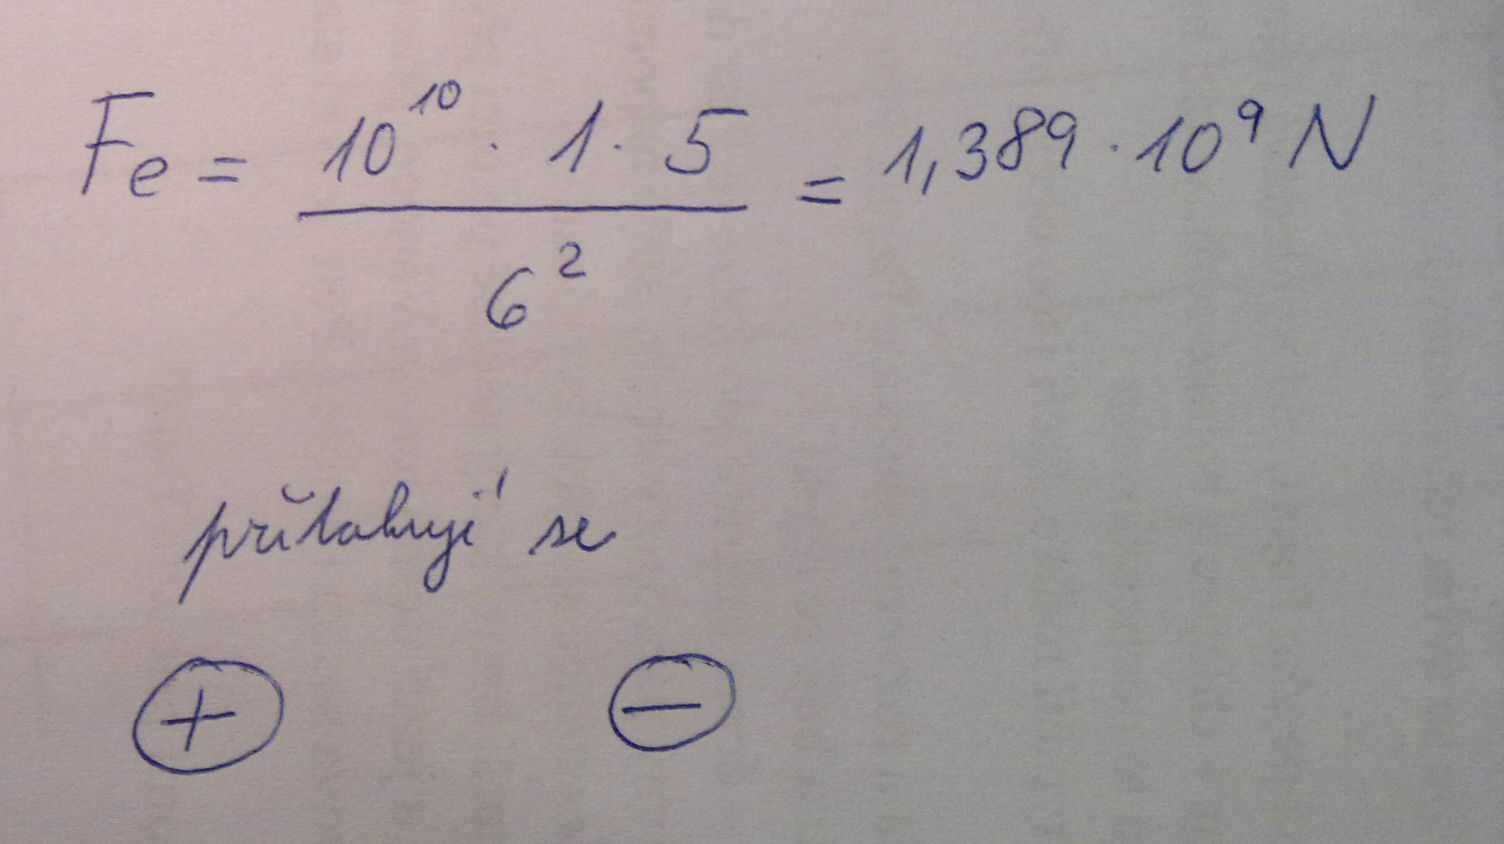 Fe = 10^10 · 1 · 5 / 6^2 = 1,389 · 10^9 N
přitahují se
+ −